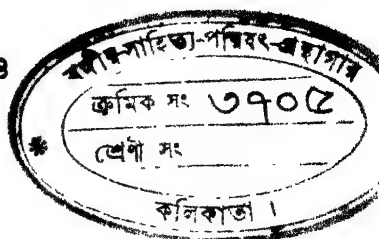 বঙ্গীয়-সাহিত্য-পরিষৎ-গ্রন্থাগার
ক্রমিক সং ৩৭০৫
শ্রেণী সং
কলিকাতা ।